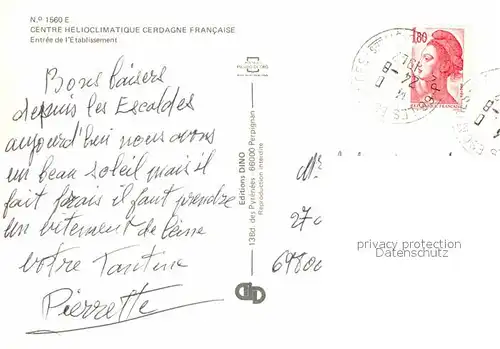 N.º 1560 E
CENTRE HELIOCLIMATIQUE CERDAGNE FRANÇAISE
Entrée de l'Etablissement
Bons baisers
depuis les Escaldes
aujourd'hui nous avons
un beau soleil mais il
fait frais il faut prendre
un vêtement de laine
votre Tantine
Pierrette
Editions DINO
138d. des Pyrénées 66000 Perpignan
Reproduction interdite
1,80
27
6980
privacy protection
Datenschutz